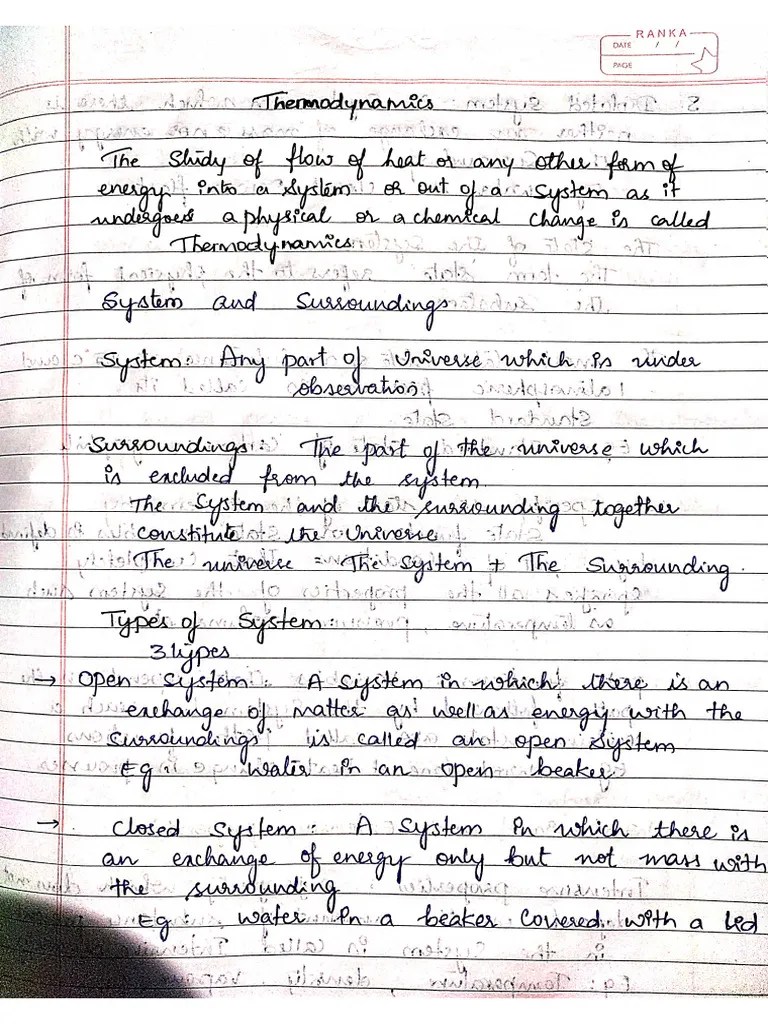 RANKA
DATE / /
PAGE
Thermodynamics
The Study of flow of heat or any other form of
energy into a system or out of a system as it
undergoes a physical or a chemical change is called
Thermodynamics
System and Surroundings
System: Any part of Universe which is under
observation
Surroundings: The part of the universe which
is excluded from the system
The system and the surrounding together
constitute the Universe
The universe = The System + The Surrounding.
Types of System:
3 types
→ Open System: A System in which there is an
exchange of matter as well as energy with the
surroundings is called an open System
Eg water in an open beaker
→ Closed System: A System in which there is
an exchange of energy only but not mass with
the surrounding
Eg: water in a beaker covered with a lid